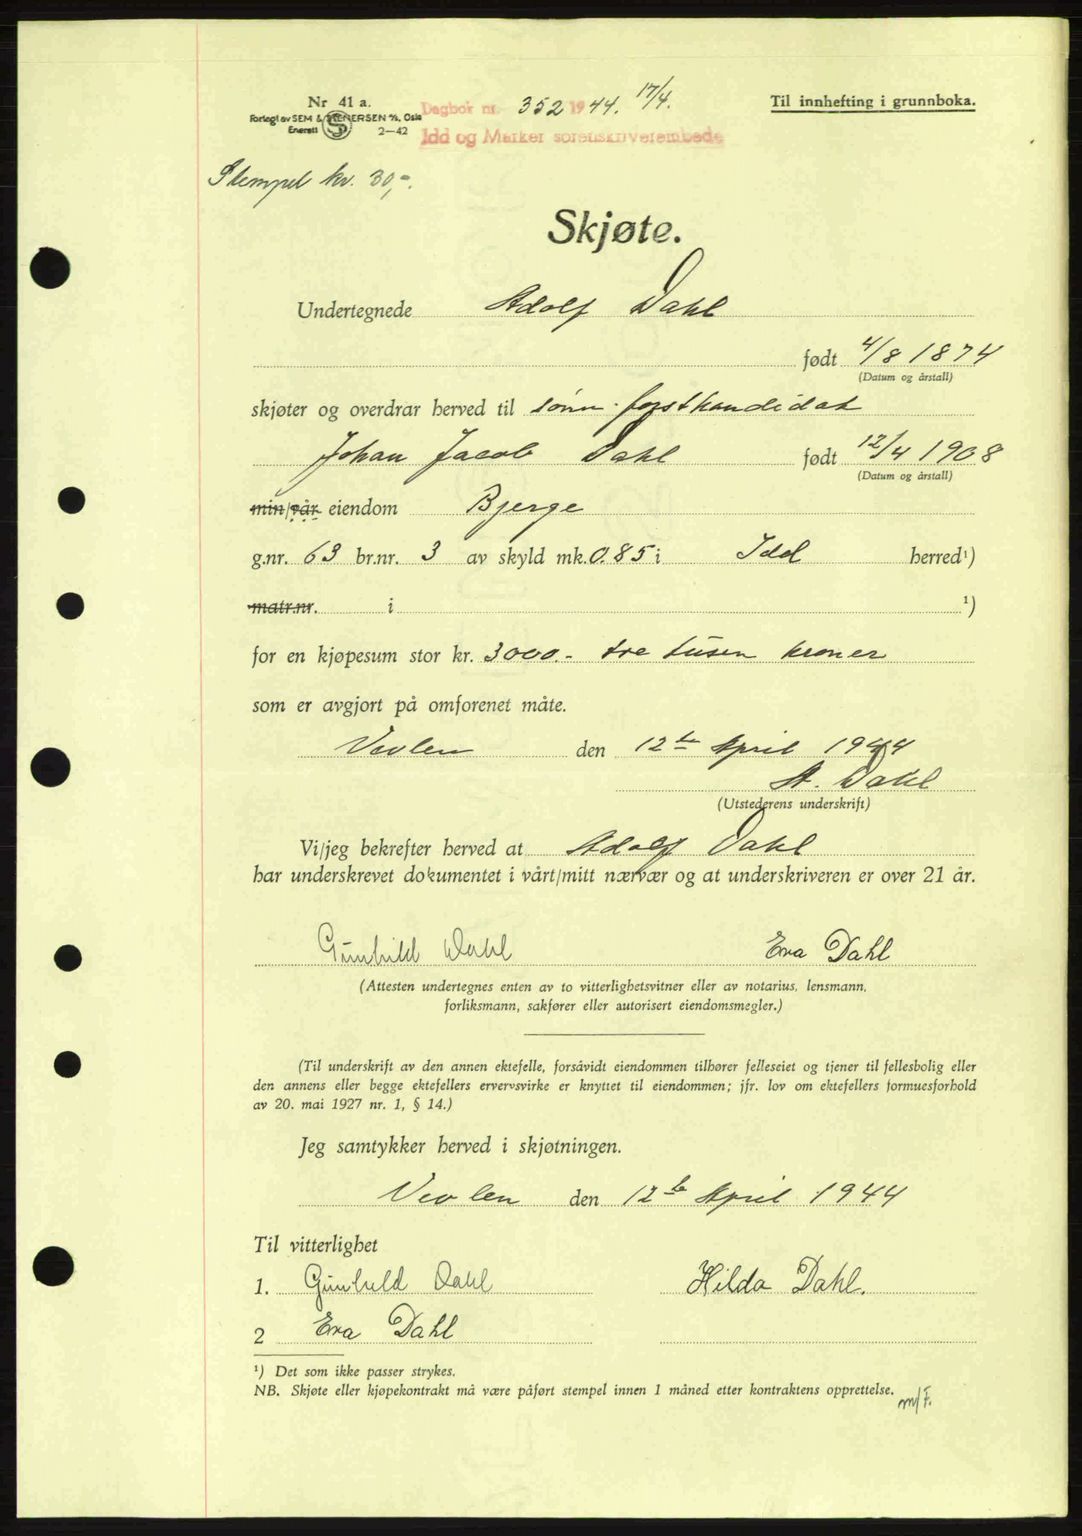 Nr 41 a.
Forlagt av SEM & STENERSEN A/S, Oslo
Enerett 2—42
Dagbok nr. 352 1944. 17/4.
Idd og Marker sorenskriverembede
Til innhefting i grunnboka.
Stempel kr. 30,-.
Skjøte.
Undertegnede Adolf Dahl
født 4/8 1874
(Datum og årstall)
skjøter og overdrar herved til sønn forstkandidat
Johan Jacob Dahl født 12/4 1908
(Datum og årstall)
min/vår eiendom Bjerge
g.nr. 63 br.nr. 3 av skyld mk. 0.85 i Idd herred¹)
matr.nr. i ¹)
for en kjøpesum stor kr. 3000.- tre tusen kroner
som er avgjort på omforenet måte.
den 12te April 1944
A. Dahl
(Utstederens underskrift)
Vi/jeg bekrefter herved at Adolf Dahl
har underskrevet dokumentet i vårt/mitt nærvær og at underskriveren er over 21 år.
Gunhild Dahl Eva Dahl
(Attesten undertegnes enten av to vitterlighetsvitner eller av notarius, lensmann,
forliksmann, sakfører eller autorisert eiendomsmegler.)
(Til underskrift av den annen ektefelle, forsåvidt eiendommen tilhører felleseiet og tjener til fellesbolig eller
den annens eller begge ektefellers ervervsvirke er knyttet til eiendommen; jfr. lov om ektefellers formuesforhold
av 20. mai 1927 nr. 1, § 14.)
Jeg samtykker herved i skjøtningen.
den 12te April 1944
Til vitterlighet
1. Gunhild Dahl Hilda Dahl.
2 Eva Dahl
¹) Det som ikke passer strykes.
NB. Skjøte eller kjøpekontrakt må være påført stempel innen 1 måned etter kontraktens opprettelse.
m/F.